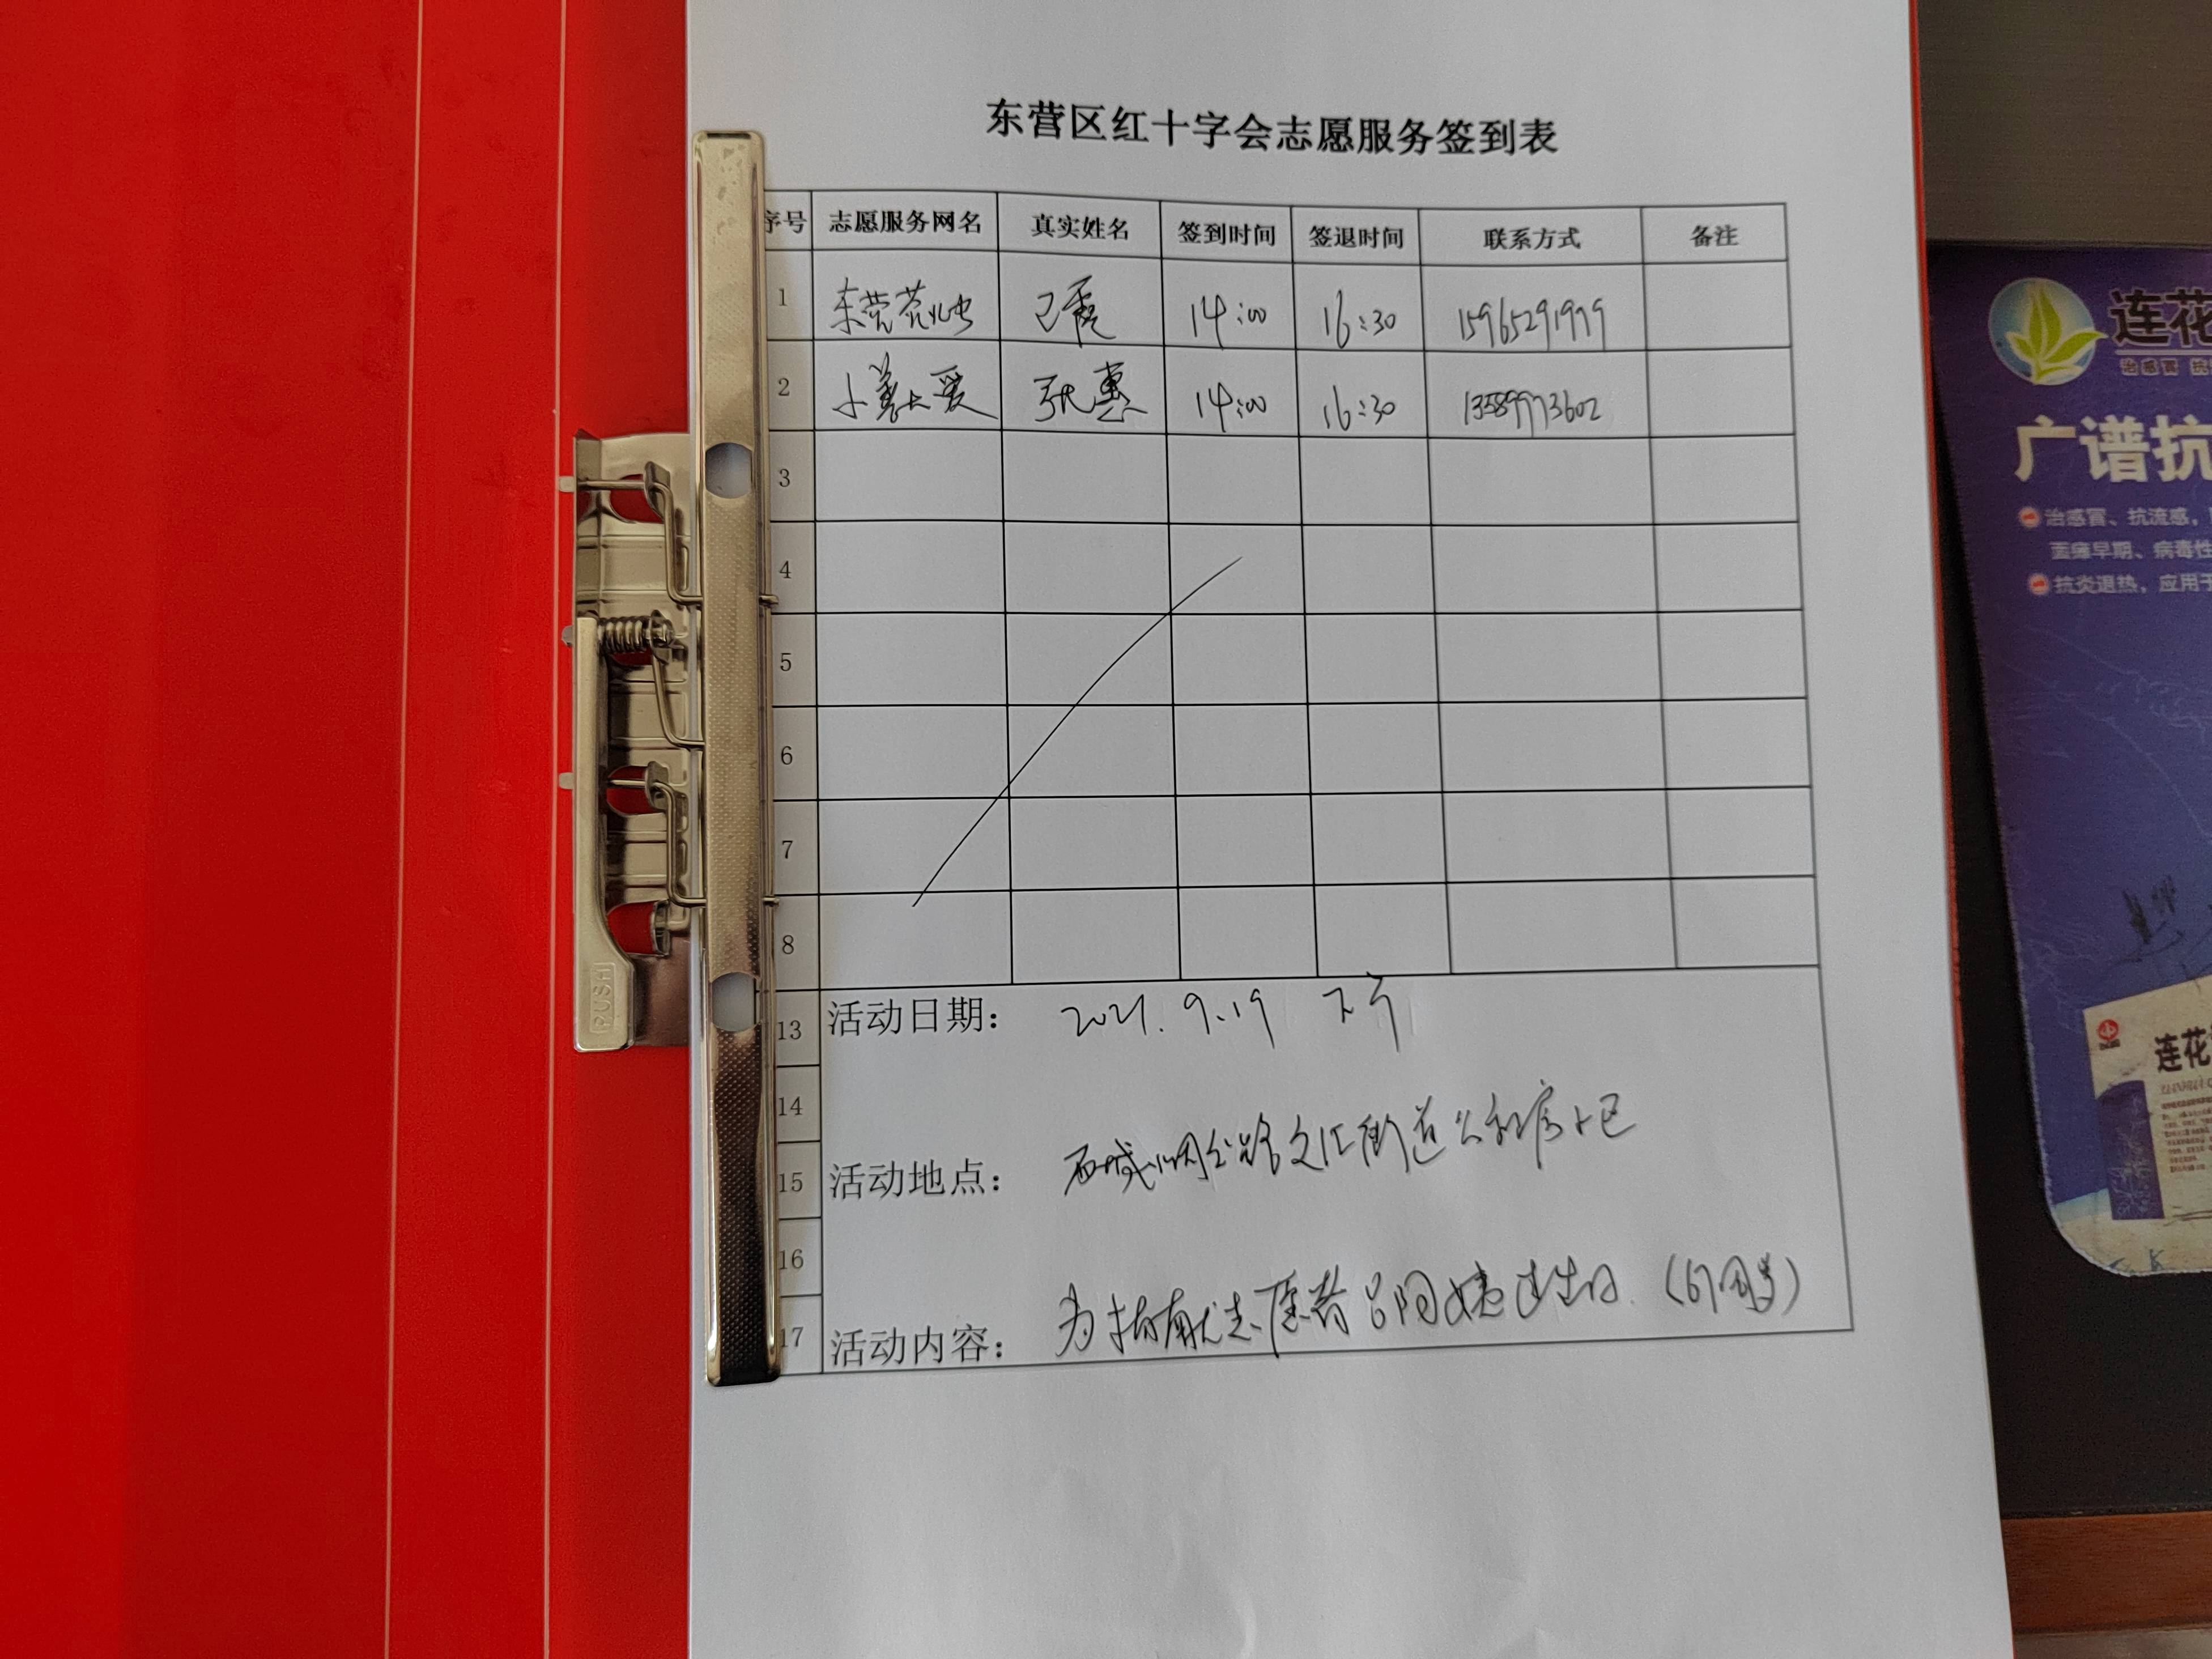 东营区红十字会志愿服务签到表
序号 志愿服务网名 真实姓名 签到时间 签退时间 联系方式 备注
1 14:00 16:30 15965291999
2 小善大爱 张惠 14:00 16:30 13589973602
3
4
5
6
7
8
13 活动日期: 2021.9.19 下午
14
15 活动地点: 西城 文汇街道公租房小区
16
17 活动内容: 为捐献志愿者吕阿姨过生日.(67周岁)
PUSH
连花
治感冒 抗
广谱抗
治感冒、抗流感,
早期、病毒性
抗炎退热,应用于
连花